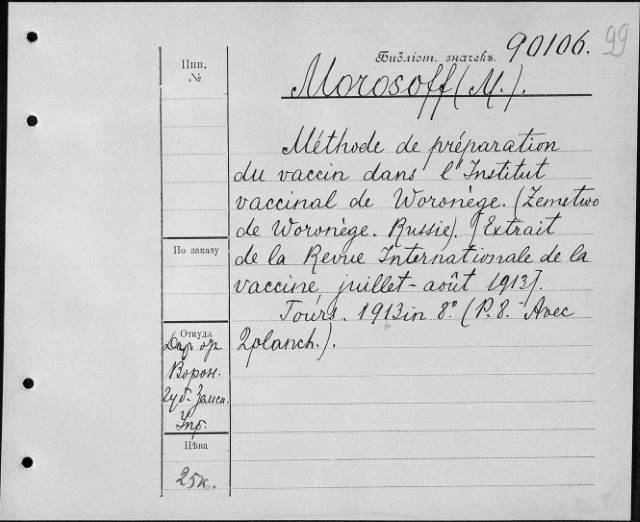 99
Библіот. значекъ 90106.
Morosoff (M.).
Méthode de préparation
du vaccin dans l'Institut
vaccinal de Woronège. (Zemstwo
de Woronège. Russie). [Extrait
de la Revue Internationale de la
vaccine, juillet-août 1913].
Tours. 1913 in 8.º (P. 8. Avec
2 planch.).
Инв.
№
По заказу
Откуда
Даръ отъ
Ворон.
Губ. Земск.
Упр.
Цѣна
25 к.